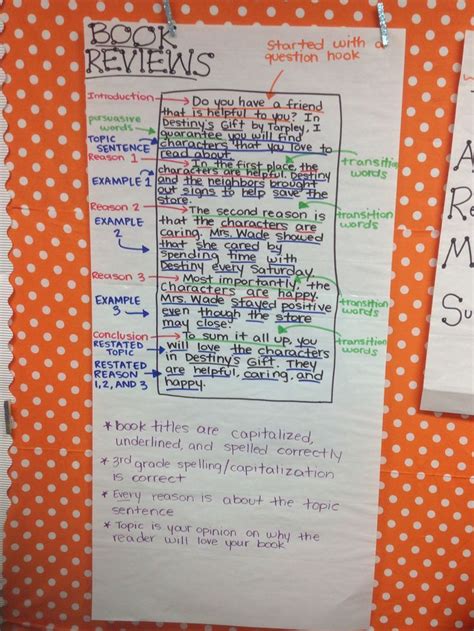 BOOK
REVIEWS
Started with a
question hook
Introduction
Do you have a friend
that is helpful to you? In
persuasive
words
Destiny's Gift by Tarpley, I
guarantee you will find
TOPIC
SENTENCE
characters that you love to
read about.
Reason 1
In the first place, the
characters are helpful. Destiny
transition
words
EXAMPLE 1
and the neighbors brought
out signs to help save the
store.
Reason 2
The second reason is
that the characters are
transition
words
EXAMPLE
2
caring. Mrs. Wade showed
that she cared by
spending time with
Destiny every Saturday.
Reason 3
Most importantly, the
characters are happy.
EXAMPLE
3
Mrs. Wade stayed positive
even though the store
may close.
transition
words
Conclusion
To sum it all up, you
transition
words
RESTATED
TOPIC
will love the characters
in Destiny's Gift. They
RESTATED
REASON
1, 2, AND 3
are helpful, caring, and
happy.
* Book titles are capitalized,
underlined, and spelled correctly
* 3rd grade spelling/capitalization
is correct
* Every reason is about the topic
sentence
* Topic is your opinion on why the
reader will love your book
A
R
M
Su